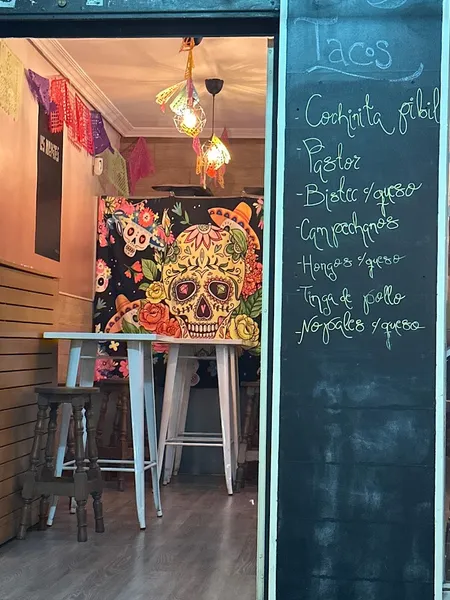 Tacos
- Cochinita pibil
- Pastor
- Bistec c/queso
- Campechanos
- Hongos c/queso
- Tinga de pollo
- Nopales c/queso